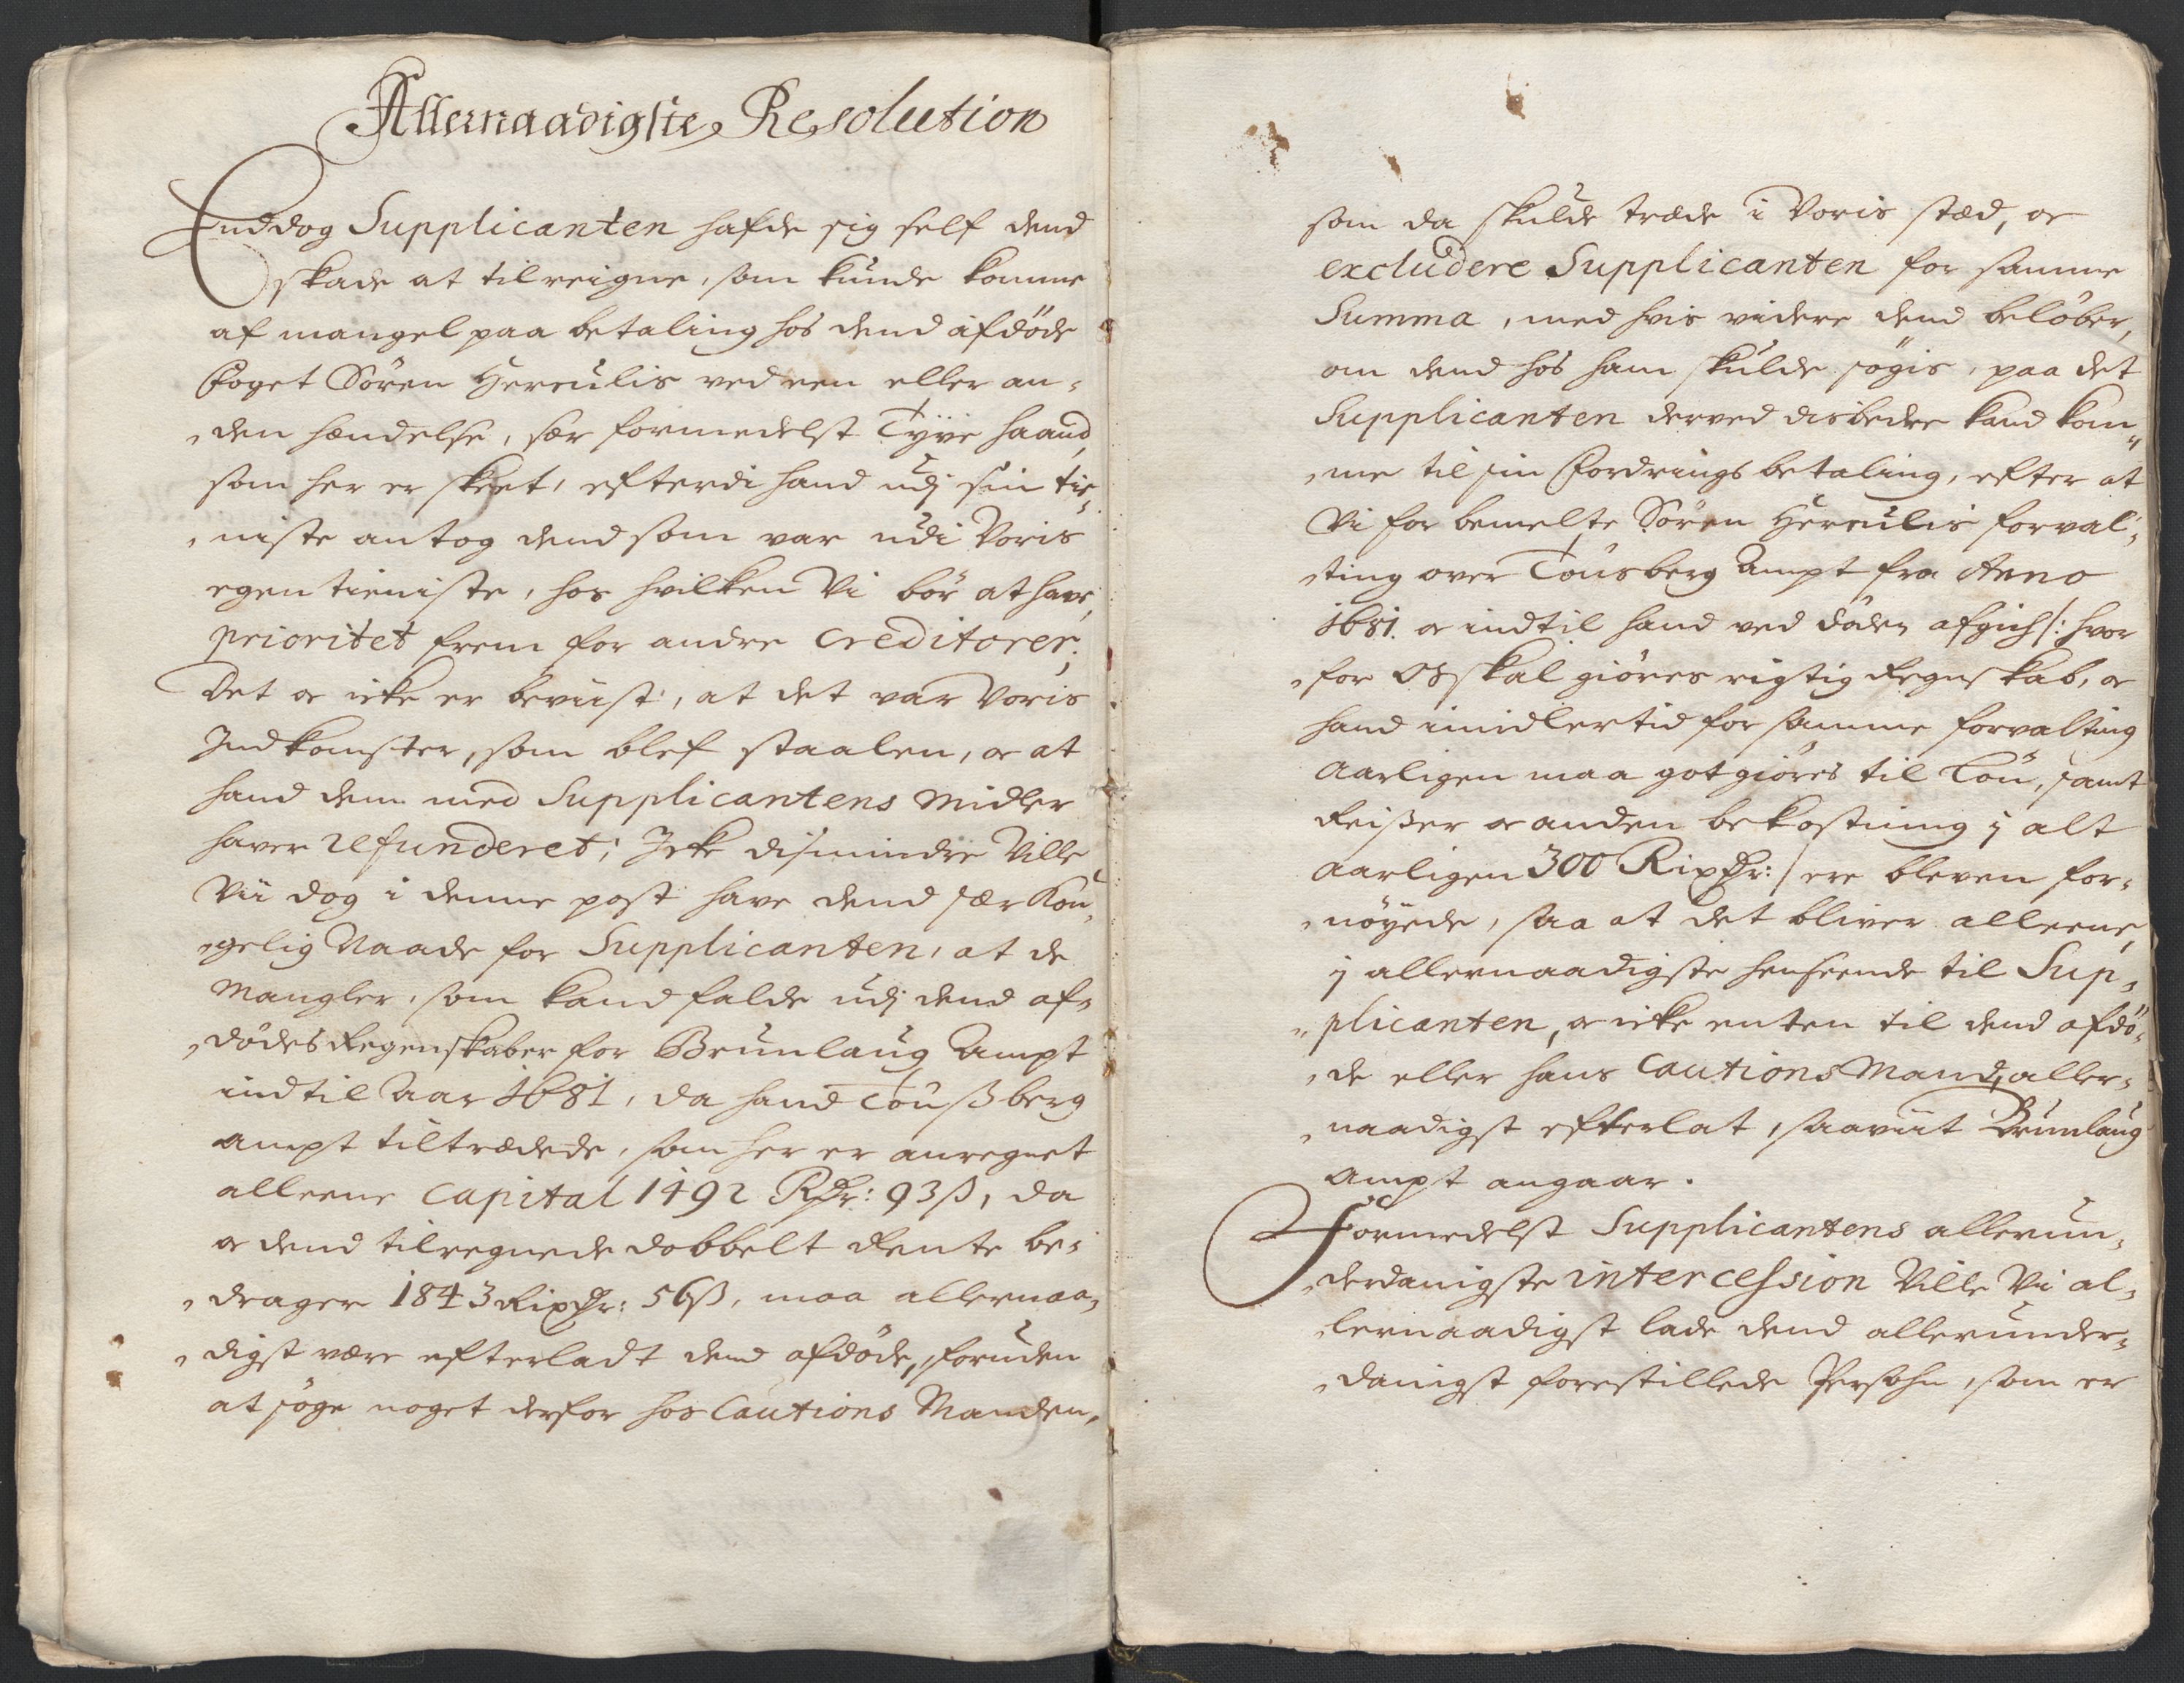 Allernaadigste Resolution
Enddog Supplicanten hafde sig self dend
skade at tilreigne, som kunde komme
af mangel paa betaling hos dend afdöde
Foget Sören Herculis ved een eller an¬
den hændelse, sær formedelst Tÿve haand,
som her er skeet, efterdi hand udj sin tie¬
niste antog dend som var udi Voris
egen tieniste, hos hvilken Vi bör at have
prioritet frem for andre Creditorer;
Det oc icke er beviist, at det var Voris
Indkomster, som blef staalen, oc at
hand dem med Supplicantens midler
haver refunderet; Icke dismindre Ville
Vii dog i denne post have dend sær Kon¬
gelig Naade for Supplicanten, at de
Mangler, som kand falde udj dend af¬
dödes Regenskaber for Brunlaug Ampt
indtil Aar 1681, da hand Tönßberg
ampt tiltrædede, som her er anregnet
alleene Capital 1492 Rdr: 93 ß, da
oc dend tilregnede dobbelt Rente be¬
drager 1843 Rixdr: 56 ß, maa allernaa¬
digst være efterladt dend afdöde, foruden
at söge noget derfor hos Cautions Manden,
som da skulde træde i Voris stæd, oc
excludere Supplicanten for samme
Summa, med hvis videre dend belöber,
om dend hos ham skulde sögis, paa det
Supplicanten derved disbedre kand kom¬
me til sin Fordrings betaling, efter at
Vi for bemelte Sören Herculis forval¬
ting over Tönsberg Ampt fra Anno
1681. oc indtil hand ved döden afgich /: hvor
for OS skal giöres rigtig Regnskab, oc
hand imidlertid for samme forvalting
Aarligen maa godtgiöres til Lön, samt
Reißer oc anden bekostning j alt
Aarligen 300 Rixdr: / ere bleven for¬
nöÿede, saa at det bliver alleene,
j allernaadigste henseende til Sup¬
plicanten, oc icke enten til dend afdö¬
de eller hans Cautions Mand, aller¬
naadigst efterlat, saaviit Brunlaug
Ampt angaar.
Formedelst Supplicantens allerun¬
derdanigste intercession Ville Vi al¬
lernaadigst lade dend allerunder¬
danigst forestillede Persohn, som er